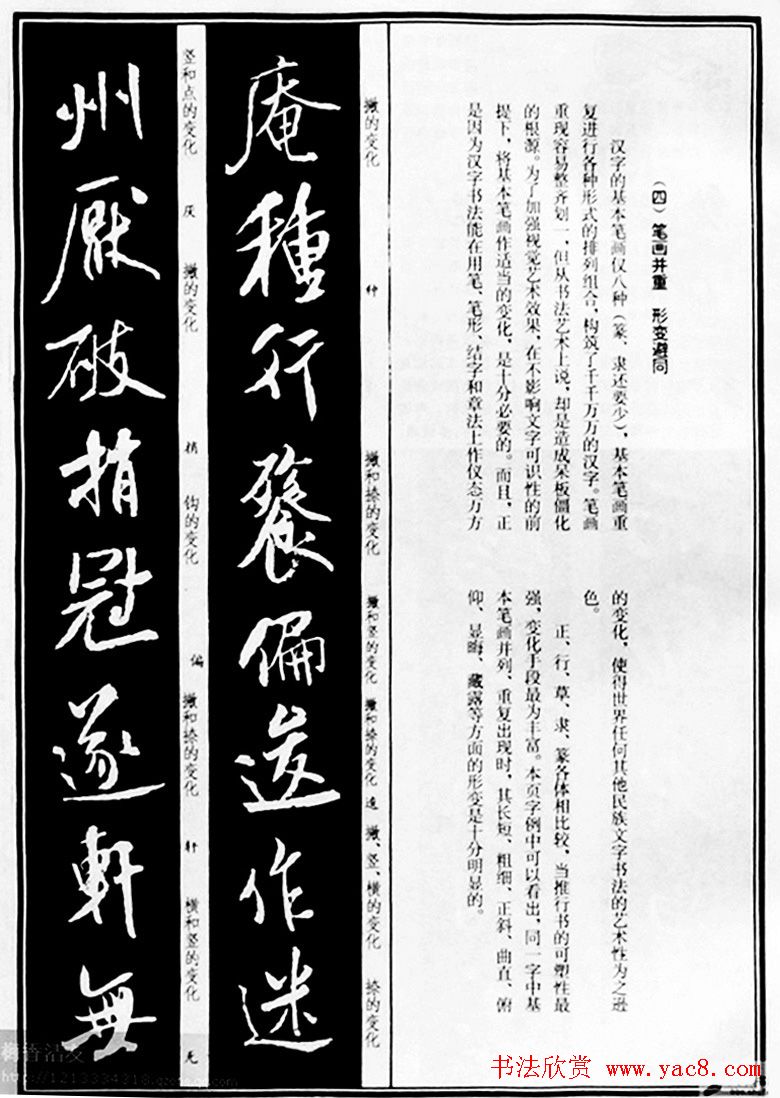 （四）笔画并重　形变避同
汉字的基本笔画仅八种（篆、隶还要少），基本笔画重
复进行各种形式的排列组合，构筑了千千万万的汉字。笔画
重现容易整齐划一，但从书法艺术上说，却是造成呆板僵化
的根源。为了加强视觉艺术效果，在不影响文字可识性的前
提下，将基本笔画作适当的变化，是十分必要的。而且，正
是因为汉字书法能在用笔、笔形、结字和章法上作仪态万方
的变化，使得世界任何其他民族文字书法的艺术性为之逊
色。
正、行、草、隶、篆各体相比较，当推行书的可塑性最
强，变化手段最为丰富。本页字例中可以看出，同一字中基
本笔画并列、重复出现时，其长短、粗细、正斜、曲直、俯
仰、显晦、藏露等方面的形变是十分明显的。
撇的变化　种　撇和捺的变化　撇和竖的变化　撇和捺的变化　逡　撇、竖、横的变化　捺的变化
庵種行餐偏逡作迷
竖和点的变化　厌　撇的变化　捎　钩的变化　偏　撇和捺的变化　轩　横和竖的变化　无
州厭破捎冠遂軒無
书法欣赏 www.yac8.com